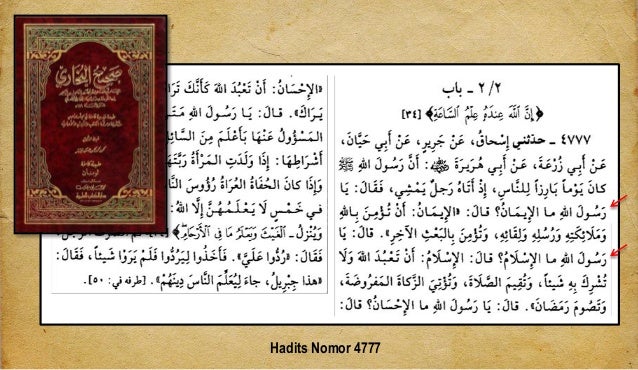 صحيح البخاري
٢/٢ ـ باب
﴿إِنَّ اللَّهَ عِندَهُ عِلْمُ السَّاعَةِ﴾ [٣٤]
٤٧٧٧ ـ حدّثني إِسْحاقُ، عَنْ جَرِيرٍ، عَنْ أَبِي حَيَّانَ،
عَنْ أَبِي زُرْعَةَ، عَنْ أَبِي هُرَيْرَةَ ﷺ: أَنَّ رَسُولَ اللهِ ﷺ
كانَ يَوْماً بَارِزاً لِلنَّاسِ، إِذْ أَتَاهُ رَجُلٌ يَمْشِي، فَقَالَ: يَا
رَسُولَ اللهِ ما الإِيمَانُ؟ قالَ: «الإِيمَانُ: أَنْ تُؤْمِنَ بِاللهِ
وَمَلَائِكَتِهِ وَرُسُلِهِ وَلِقَائِهِ، وَتُؤْمِنَ بِالْبَعْثِ الآخِرِ». قالَ: يَا
رَسُولَ اللهِ ما الإِسْلَامُ؟ قالَ: الإِسْلَامُ: أَنْ تَعْبُدَ اللهَ وَلَا
تُشْرِكَ بِهِ شَيْئاً، وَتُقِيمَ الصَّلَاةَ، وَتُؤْتِيَ الزَّكاةَ المَفْرُوضَةَ،
وَتَصُومَ رَمَضَانَ». قالَ: يَا رَسُولَ اللهِ ما الإِحْسَانُ؟ قالَ:
«الإِحْسَانُ: أَنْ تَعْبُدَ اللهَ كَأَنَّكَ
يَرَاكَ». قالَ: يَا رَسُولَ اللهِ
الْمَسْؤُولُ عَنْهَا بِأَعْلَمَ مِنَ
أَشْرَاطِهَا: إِذَا وَلَدَتِ الْمَرْأَةُ رَبَّتَهَا
وَإِذَا كانَ الْحُفَاةُ الْعُرَاةُ رُؤُوسَ
في خَمْسٍ لَا يَعْلَمُهُنَّ إِلَّا اللهُ:
وَيُنَزِّلُ الْغَيْثَ وَيَعْلَمُ مَا فِي الْأَرْحَامِ﴾
فَقَالَ: «رُدُّوا عَلَيَّ». فَأَخَذُوا لِيَرُدُّوا فَلَمْ يَرَوْا شَيْئاً، فَقَالَ:
«هذا جِبْرِيلُ، جاءَ لِيُعَلِّمَ النَّاسَ دِينَهُمْ». [طرفه في: ٥٠].
Hadits Nomor 4777